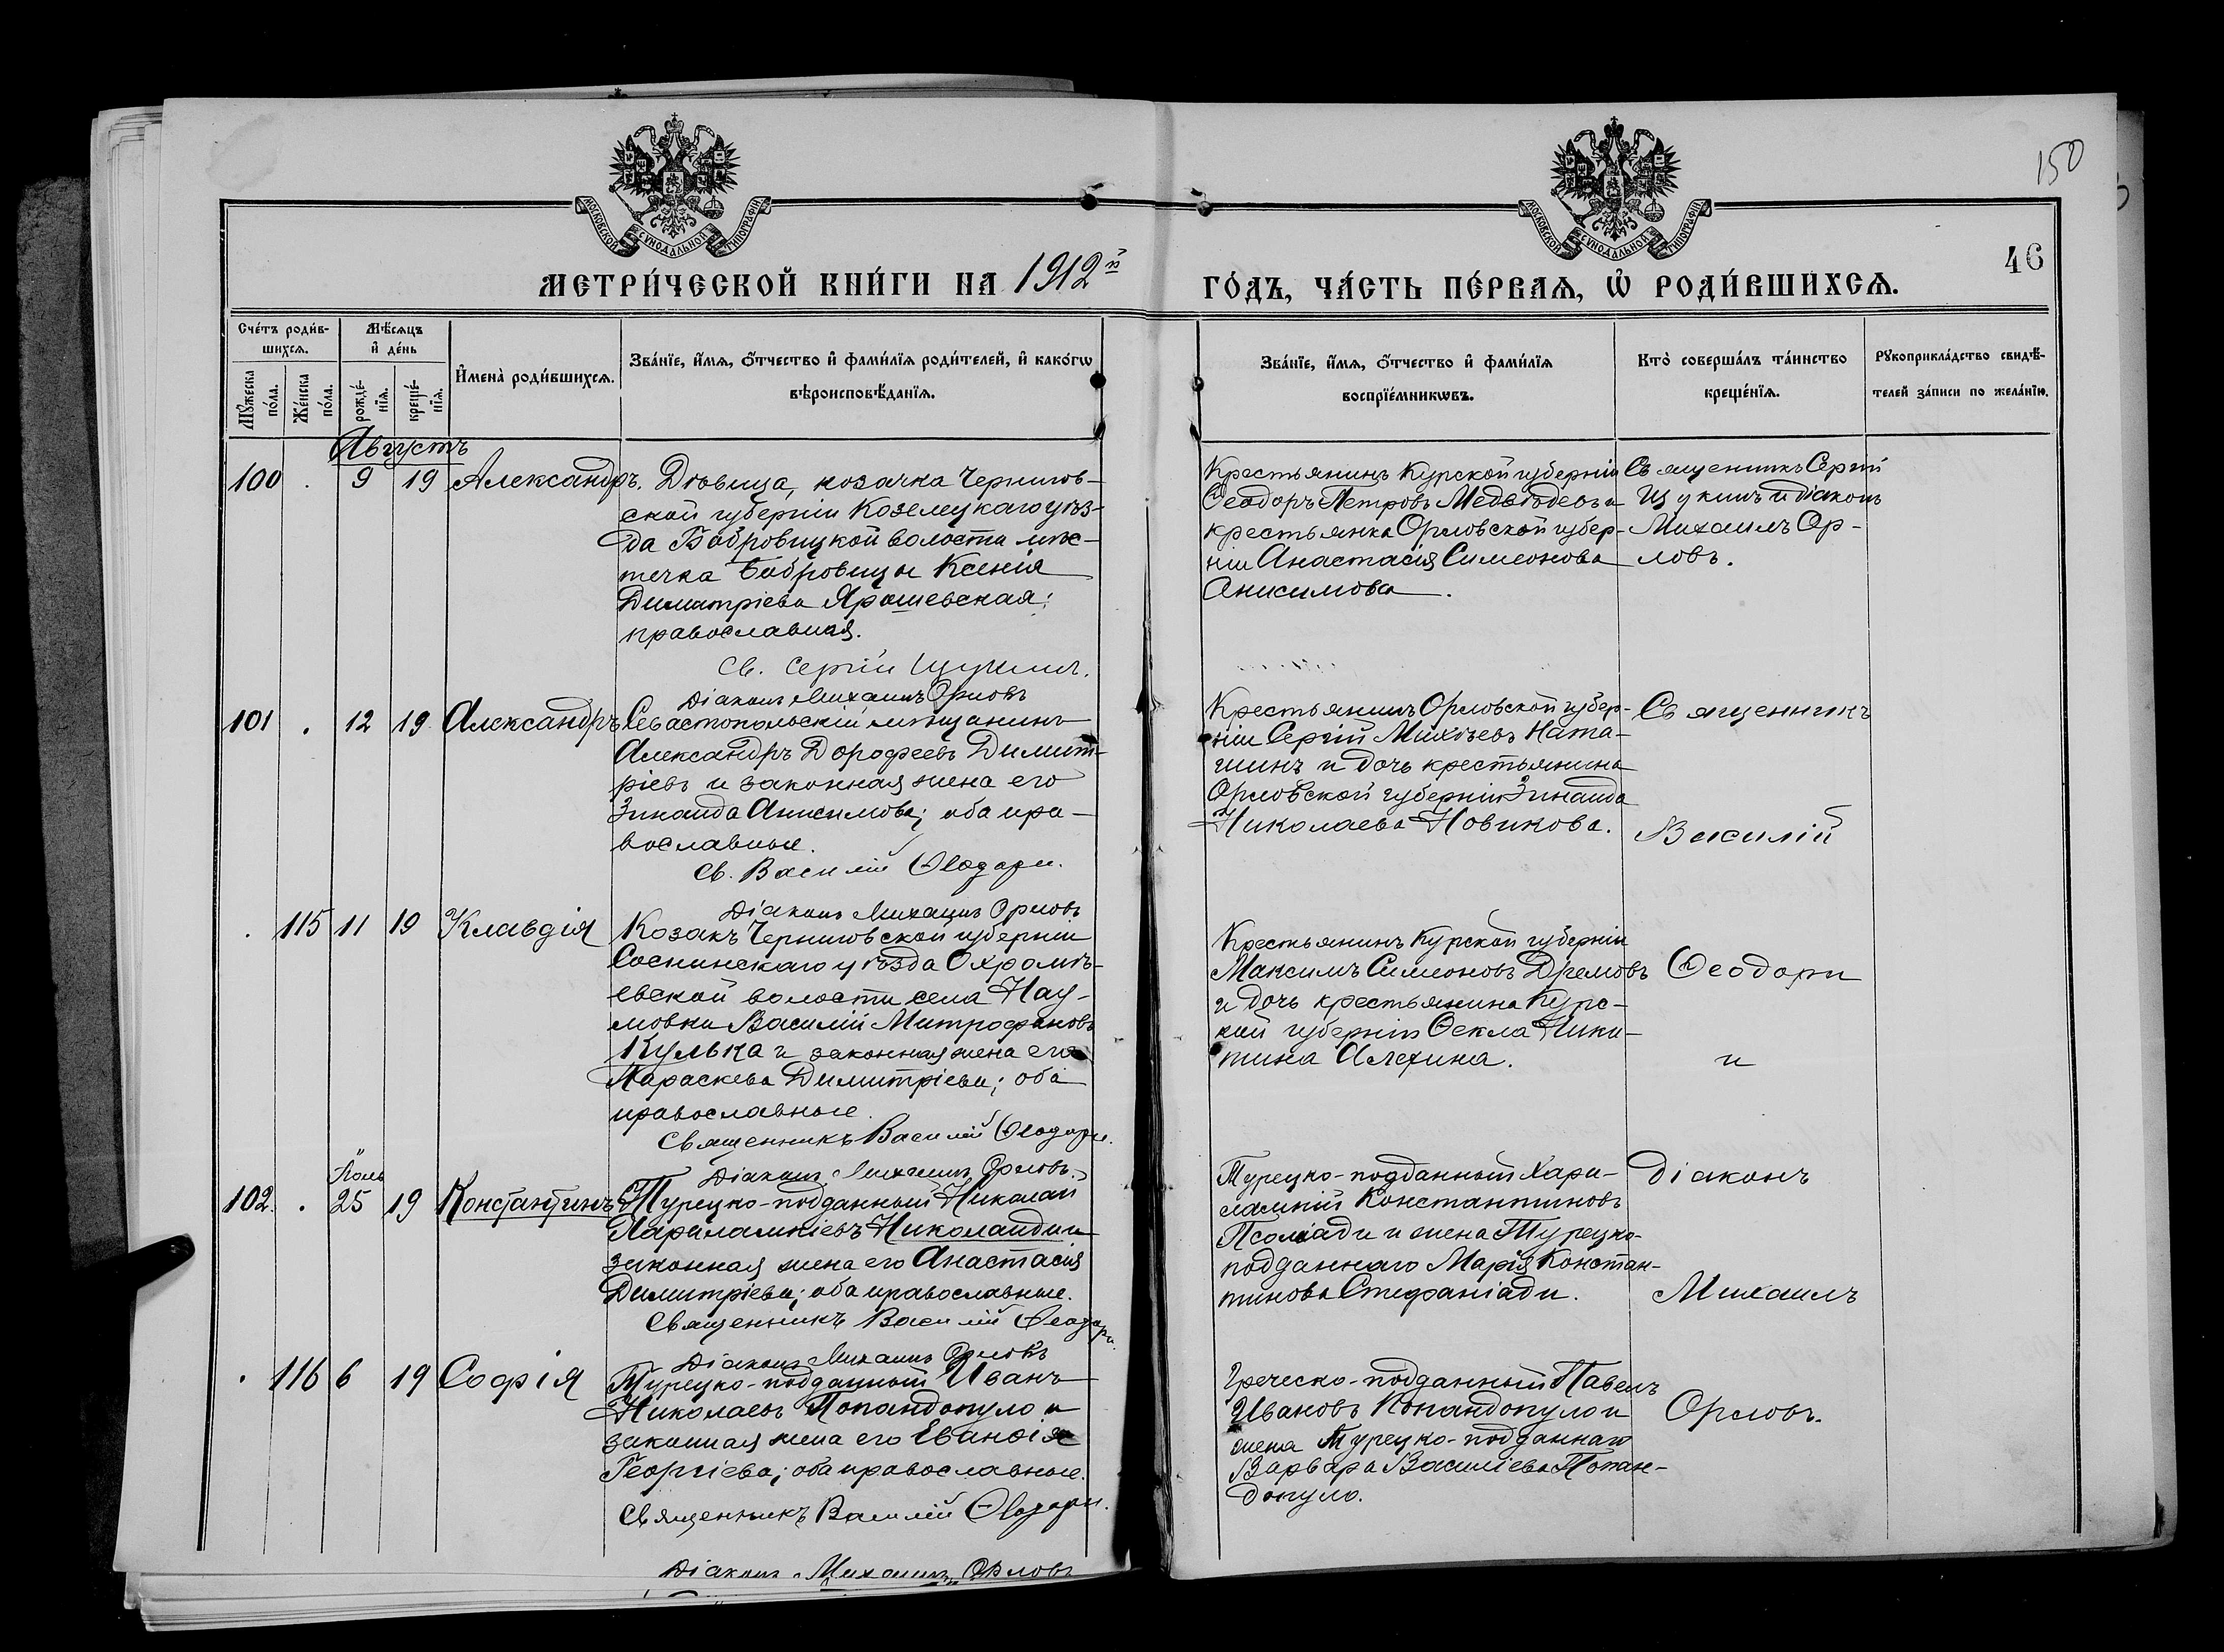 150
46
МОСКОВСКОЙ СѴНОДАЛЬНОЙ ТИПОГРАФІИ
МОСКОВСКОЙ СѴНОДАЛЬНОЙ ТИПОГРАФІИ
МЕТРИ́ЧЕСКОЙ КНИ́ГИ НА 1912й
ГО́ДЪ, ЧА́СТЬ ПЕ́РВАѦ, Ѡ҆ РОДИ́ВШИХСѦ.
Сче́тъ роди́в-
шихсѧ.
Мѣ́сѧцъ
и҆ де́нь
Мꙋ́жеска
по́ла.
Же́нска
по́ла.
рожде́-
нїѧ.
креще́-
нїѧ.
И҆мена̀ роди́вшихсѧ.
Зва́нїе, и҆́мѧ, ѻ҆́тчество и҆ фами́лїѧ роди́телей, и҆ како́гѡ
вѣроисповѣ́данїѧ.
Зва́нїе, и҆́мѧ, ѻ҆́тчество и҆ фами́лїѧ
воспрїе́мникѡвъ.
Кто̀ соверша́лъ та́инство
креще́нїѧ.
Рꙋкоприкла́дство свидѣ́-
телей за́писи по жела́нїю.
Августъ
100 . 9 19 Александръ.
Дѣвица, козачка Чернигов-
ской губерніи Козелецкаго уѣз-
да Бобровицкой волости мѣс-
течка Бобровицы Ксенія
Димитріева Ярошевская;
православная.
Св. Сергій Щукинъ.
Діаконъ Михаилъ Орловъ
Крестьянинъ Курской губерніи
Ѳеодоръ Петровъ Медвѣдевъ и
крестьянка Орловской губер-
ніи Анастасія Симеонова
Анисимова.
Священникъ Сергій
Щукинъ и діаконъ
Михаилъ Ор-
ловъ.
101 . 12 19 Александръ
Севастопольскій мѣщанинъ
Александръ Дорофеевъ Димит-
ріевъ и законная жена его
Зинаида Анисимова; оба пра-
вославные.
Св. Василій Ѳеодори.
Діаконъ Михаилъ Орловъ
Крестьянинъ Орловской губер-
ніи Сергій Михѣевъ Ната-
шинъ и дочь крестьянина
Орловской губерніи Зинаида
Николаева Новикова.
Священникъ
Василій
. 115 11 19 Клавдія
Козакъ Черниговской губерніи
Сосницскаго уѣзда Охрамѣ-
евской волости села Нау-
мовки Василій Митрофановъ
Кулька и законная жена его
Параскева Димитріева; оба
православные.
Священникъ Василій Ѳеодори.
Діаконъ Михаилъ Орловъ.
Крестьянинъ Курской губерніи
Максимъ Симеоновъ Дремовъ
и дочь крестьянина Курс-
кой губерніи Ѳекла Ники-
тина Алехина.
Ѳеодори
и
Іюль
102. . 25 19 Константинъ
Турецко-подданный Николай
Харалампіевъ Николаиди и
законная жена его Анастасія
Димитріева; оба православные.
Священникъ Василій Ѳеодори.
Діаконъ Михаилъ Орловъ
Турецко-подданный Хара-
лампій Константиновъ
Псоміади и жена Турецко-
подданнаго Марія Констан-
тинова Стефаніади.
діаконъ
Михаилъ
. 116 6 19 Софія
Турецко-подданный Иванъ
Николаевъ Попандопуло и
законная жена его Еванѳія
Георгіева; оба православные.
Священникъ Василій Ѳеодори.
Діаконъ Михаилъ Орловъ
Греческо-подданный Павелъ
Ивановъ Попандопуло и
жена Турецко-подданнаго
Варвара Василіева Попан-
допуло.
Орловъ.